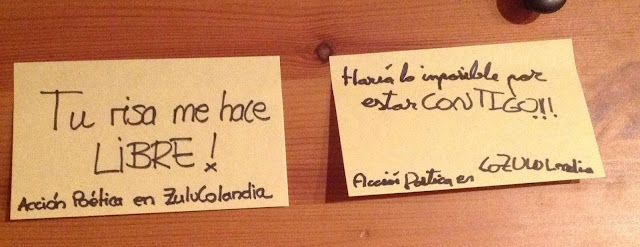 Tu risa me hace
LiBRE!
Acción Poética en ZuluColandia
Haría lo imposible por
estar CONTIGO!!!
Acción Poética en CoZULULandia